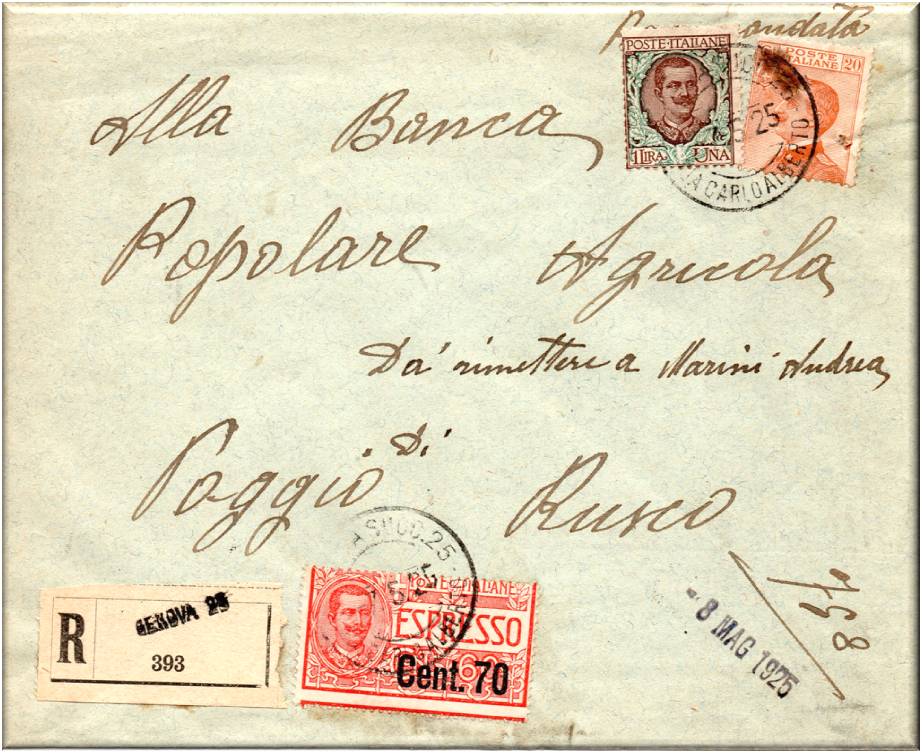 POSTE·ITALIANE
1 LIRA. UNA
POSTE ITALIANE
20
25
VIA CARLO ALBERTO
Alla Banca
Popolare Agricola
Da' rimettere a Marini Andrea
Poggio Di Rusco
SUCC. 25
R
GENOVA 25
393
POSTE ITALIANE
ESPRESSO
60
Cent. 70
- 8 MAG 1925